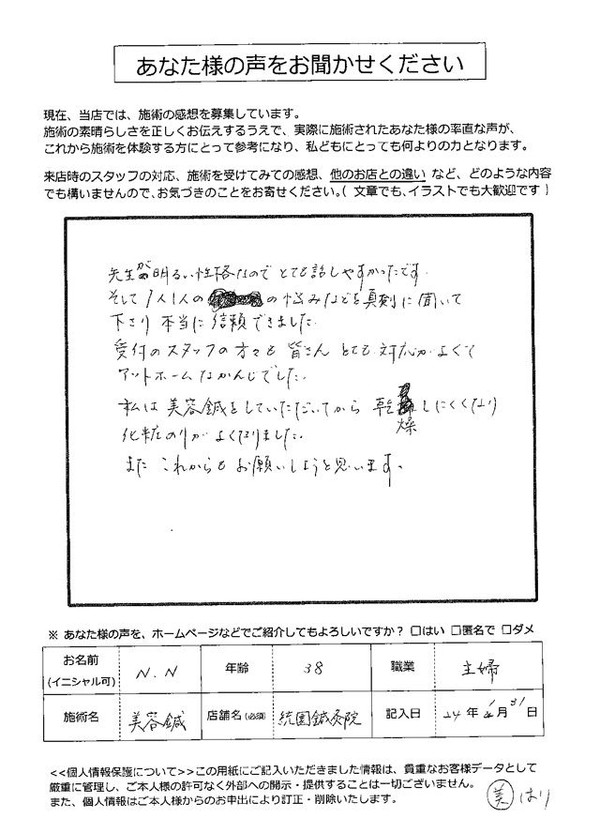 あなた様の声をお聞かせください
現在、当店では、施術の感想を募集しています。
施術の素晴らしさを正しくお伝えするうえで、実際に施術されたあなた様の率直な声が、
これから施術を体験する方にとって参考になり、私どもにとっても何よりの力となります。
来店時のスタッフの対応、施術を受けてみての感想、他のお店との違い など、どのような内容
でも構いませんので、お気づきのことをお寄せください。( 文章でも、イラストでも大歓迎です )
先生が明るい性格なので とても話しやすかったです。
そして 1人1人の の悩みなどを真剣に聞いて
下さり 本当に 信頼できました。
受付のスタッフの方々も 皆さん とても 対応がよくて
アットホームなかんじでした。
私は 美容鍼をしていただいてから 乾燥しにくくなり
化粧のりが よくなりました。
また これからも お願いしようと思います。
※ あなた様の声を、ホームページなどでご紹介してもよろしいですか？ □はい □匿名で □ダメ
お名前 (イニシャル可) N.N 年齢 38 職業 主婦
施術名 美容鍼 店舗名(必須) 鍼灸院 記入日 24年 月31日
<<個人情報保護について>>この用紙にご記入いただきました情報は、貴重なお客様データとして
厳重に管理し、ご本人様の許可なく外部への開示・提供することは一切ございません。
また、個人情報はご本人様からのお申出により訂正・削除いたします。
美 はり